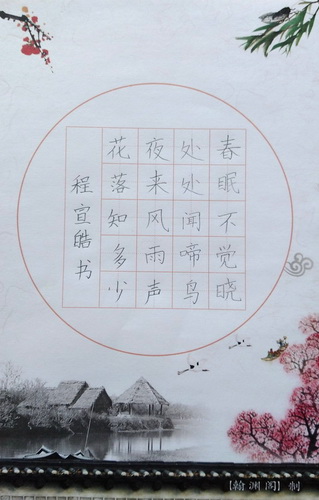 春眠不觉晓
处处闻啼鸟
夜来风雨声
花落知多少
程宣皓书
【翰渊阁】制